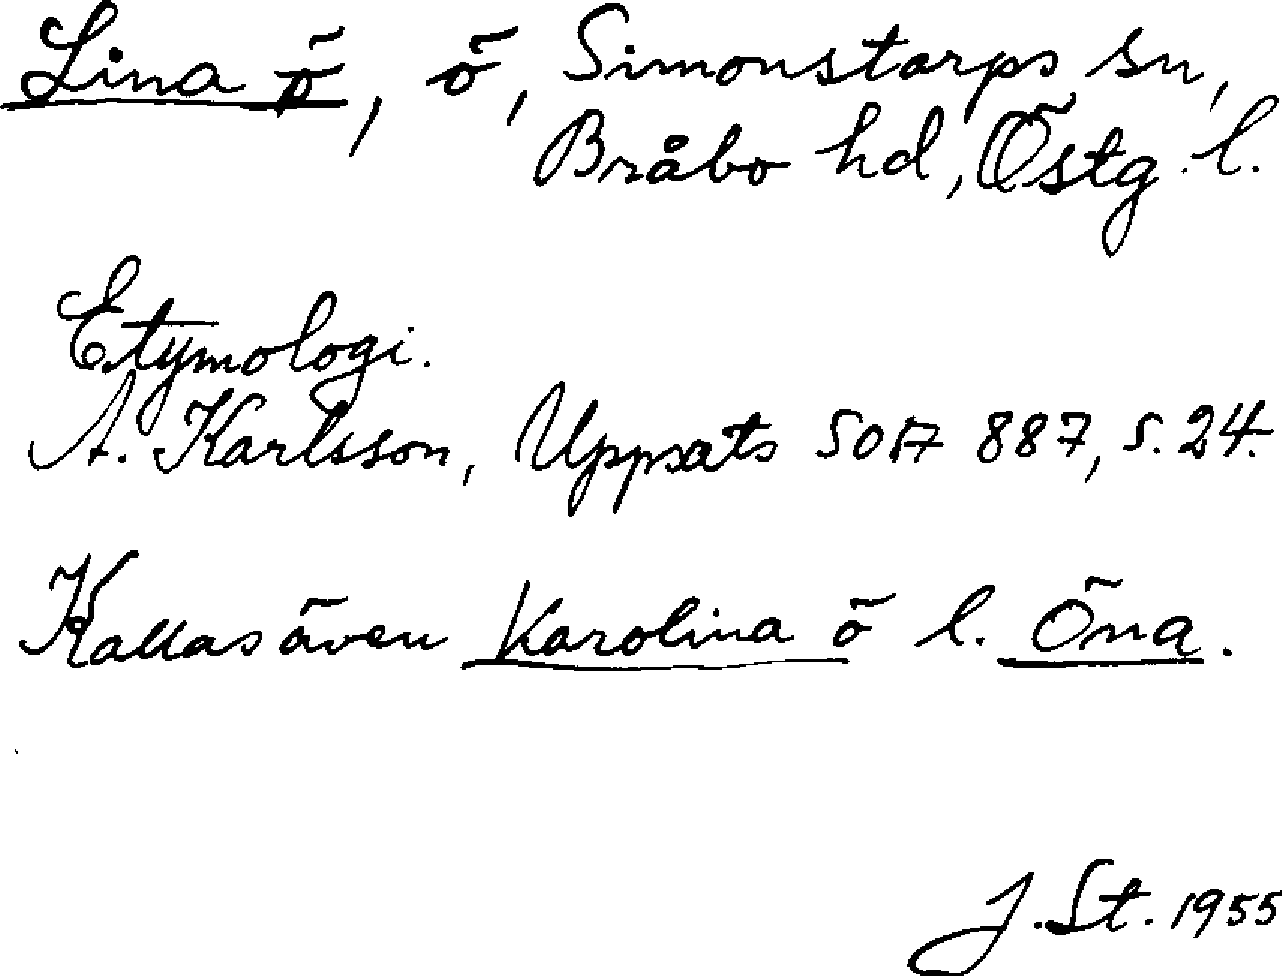 Lina ö, ö, Simonstorps sn,
Bråbo hd, Östg. l.
Etymologi.
A. Karlsson, Uppsats SOA 887, s. 24.
Kallas även Karolina ö l. Öna.
J. St. 1955